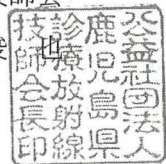 公益社団法人
鹿児島県
診療放射線
技師会長印
也